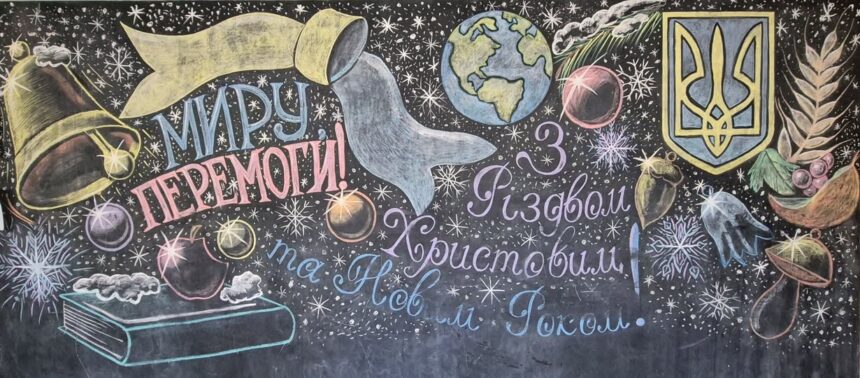 МИРУ,
ПЕРЕМОГИ!
З
Різдвом
Христовим!
та Новим Роком!